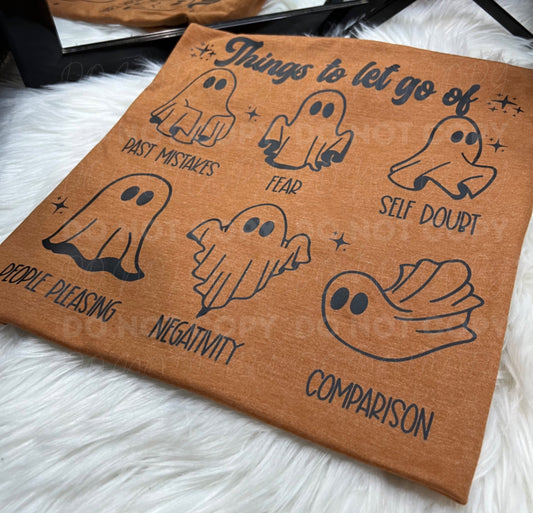 Things to let go of
PAST MISTAKES
FEAR
SELF DOUBT
PEOPLE PLEASING
NEGATIVITY
COMPARISON
DO NOT COPY
DO NOT COPY
DO NOT COPY
DO NOT COPY